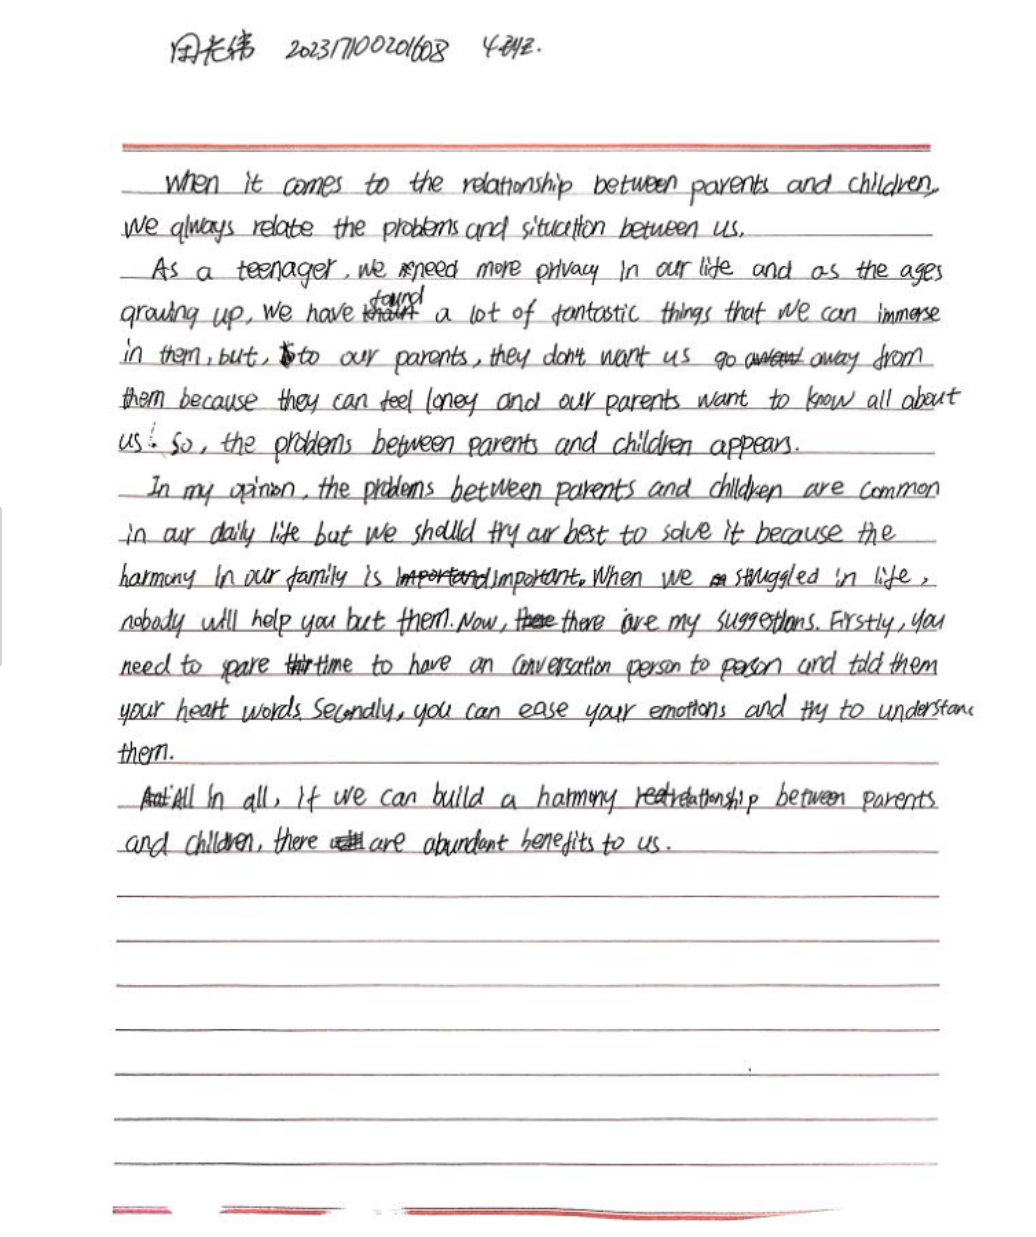 周长纬 202317100201608 4班.
When it comes to the relationship between parents and children,
we always relate the problems and situcation between us.
As a teenager, we need more privacy in our life and as the ages
growing up, we have found a lot of fantastic things that we can immerse
in them, but, to our parents, they don't want us go away from
them because they can feel loney and our parents want to know all about
us. So, the problems between parents and children appears.
In my opinion, the problems between parents and children are common
in our daily life but we should try our best to solve it because the
harmony in our family is important. When we struggled in life,
nobody will help you but them. Now, there are my suggestions. Firstly, you
need to spare time to have an conversation person to person and told them
your heart words. Secondly, you can ease your emotions and try to understand
them.
All in all, if we can build a harmony relationship between parents
and children, there are abundant benefits to us.